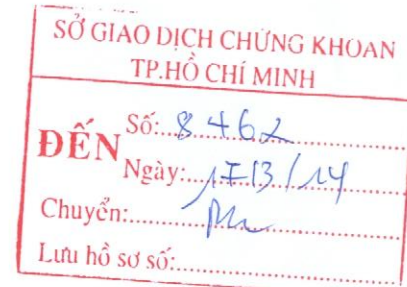 SỞ GIAO DỊCH CHỨNG KHOAN
TP.HỒ CHÍ MINH
ĐẾN
Số: 8462
Ngày: 17/3/14
Chuyển:
Lưu hồ sơ số: